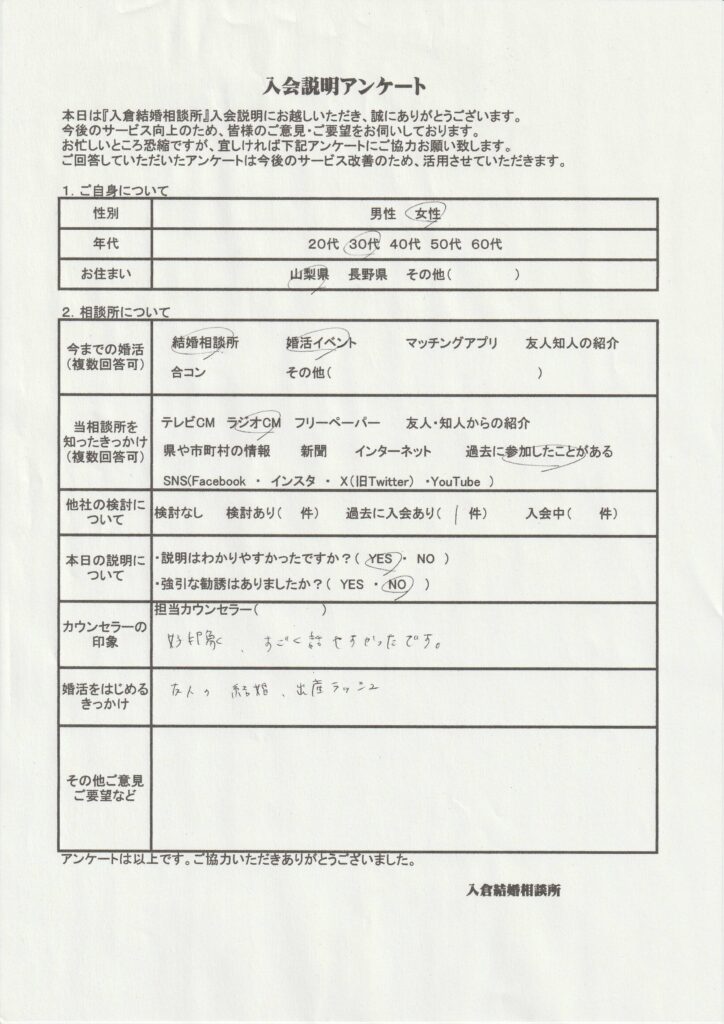 入会説明アンケート
本日は『入倉結婚相談所』入会説明にお越しいただき、誠にありがとうございます。
今後のサービス向上のため、皆様のご意見・ご要望をお伺いしております。
お忙しいところ恐縮ですが、宜しければ下記アンケートにご協力お願い致します。
ご回答していただいたアンケートは今後のサービス改善のため、活用させていただきます。
1．ご自身について
性別 男性 女性
年代 20代 30代 40代 50代 60代
お住まい 山梨県 長野県 その他( )
2．相談所について
今までの婚活
(複数回答可)
結婚相談所 婚活イベント マッチングアプリ 友人知人の紹介
合コン その他( )
当相談所を
知ったきっかけ
(複数回答可)
テレビCM ラジオCM フリーペーパー 友人・知人からの紹介
県や市町村の情報 新聞 インターネット 過去に参加したことがある
SNS(Facebook ・ インスタ ・ X(旧Twitter) ・YouTube )
他社の検討に
ついて
検討なし 検討あり( 件) 過去に入会あり( 1 件) 入会中( 件)
本日の説明に
ついて
・説明はわかりやすかったですか？( YES ・ NO )
・強引な勧誘はありましたか？( YES ・ NO )
カウンセラーの
印象
担当カウンセラー( )
好印象、すごく話やすかったです。
婚活をはじめる
きっかけ
友人の結婚、出産ラッシュ
その他ご意見
ご要望など
アンケートは以上です。ご協力いただきありがとうございました。
入倉結婚相談所